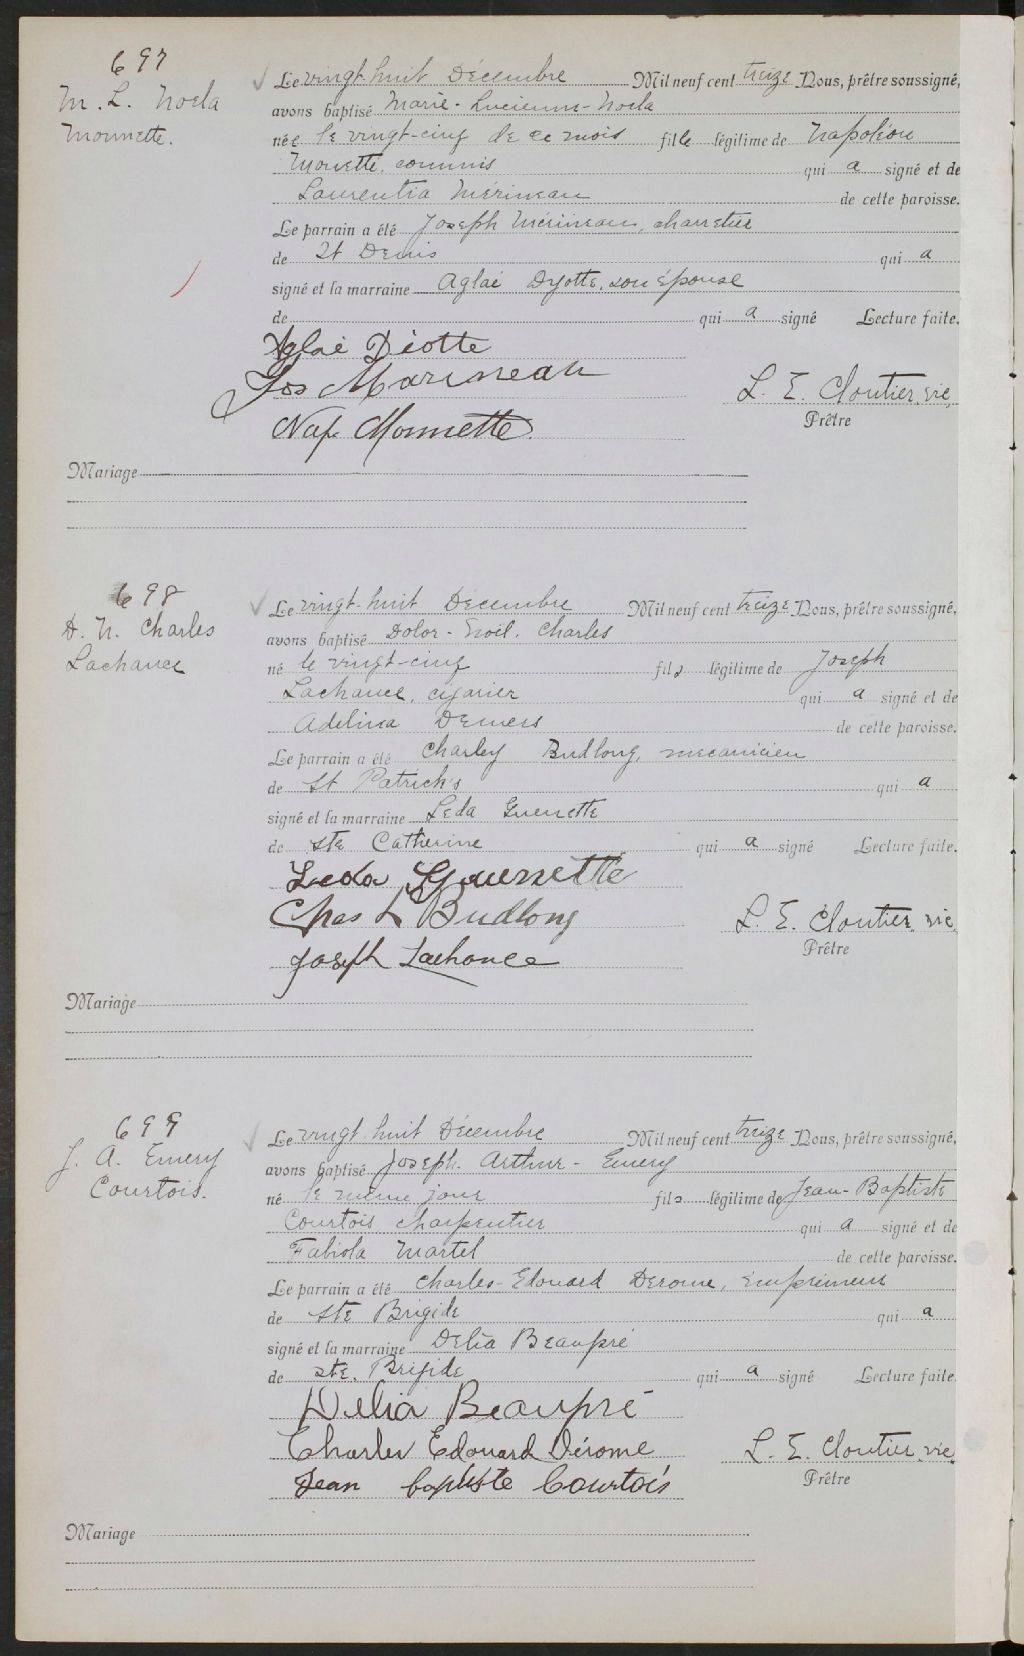 697
M. L. Noela
Monnette.
Le vingt-huit Décembre Mil neuf cent treize Nous, prêtre soussigné,
avons baptisé Marie-Lucienne-Noela
née le vingt-cinq de ce mois fille légitime de Napoléon
Monette, commis qui a signé et de
Laurentia Mérineau de cette paroisse.
Le parrain a été Joseph Mérineau, charretier
de St Denis qui a
signé et la marraine Aglaé Dyotte, son épouse
de qui a signé Lecture faite.
Aglaé Diotte
Jos Marineau
L. E. Cloutier, vic.
Nap. Monnette
Prêtre
Mariage
698
D. N. Charles
Lachance
Le vingt-huit Décembre Mil neuf cent treize Nous, prêtre soussigné,
avons baptisé Dolor-Noël. Charles
né le vingt-cinq fils légitime de Joseph
Lachance, cigarier qui a signé et de
Adelina Demers de cette paroisse.
Le parrain a été Charley Budlong, mecanicien
de St Patrick's qui a
signé et la marraine Leda Guenette
de Ste Catherine qui a signé Lecture faite.
Leda Guenette
Chas L Budlong
L. E. Cloutier, vic.
Prêtre
Joseph Lachance
Mariage
699
J. A. Emery
Courtois.
Le vingt-huit Décembre Mil neuf cent treize Nous, prêtre soussigné,
avons baptisé Joseph-Arthur-Emery
né le même jour fils légitime de Jean-Baptiste
Courtois, charpentier qui a signé et de
Fabiola Martel de cette paroisse.
Le parrain a été Charles-Edouard Derome, imprimeur
de Ste Brigide qui a
signé et la marraine Delia Beaupré
de Ste. Brigide qui a signé Lecture faite.
Delia Beaupré
Charles Edouard Dérome
L. E. Cloutier, vic.
Jean baptiste Courtois
Prêtre
Mariage